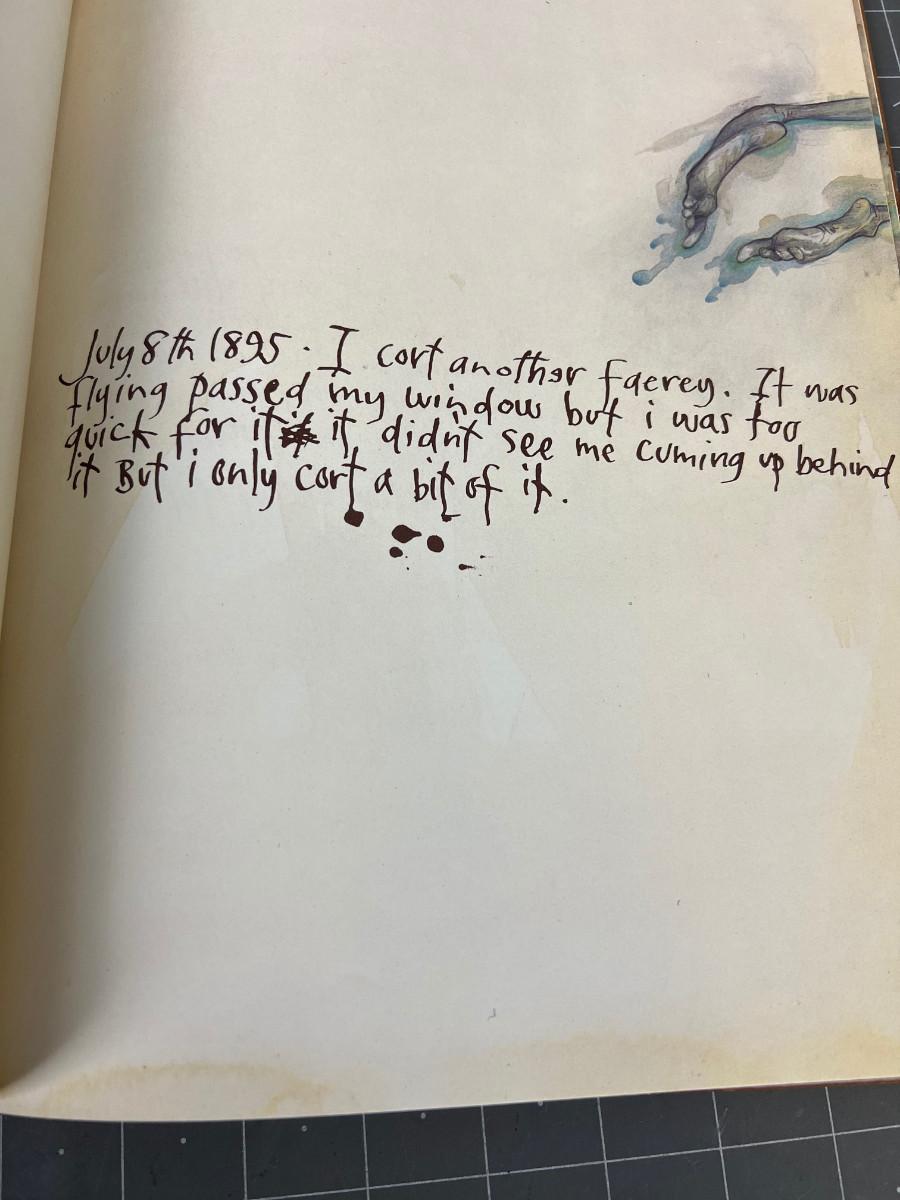 July 8th 1895. I cort another faerey. It was
flying passed my window but i was too
quick for it it didn't see me cuming up behind
it But i only cort a bit of it.